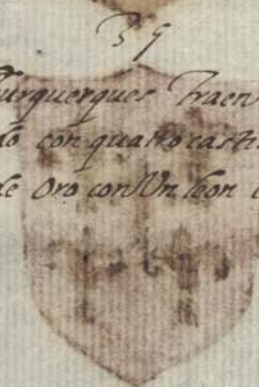 39
Burquerques Traen
do con quatro casti
de Oro con Vn leon